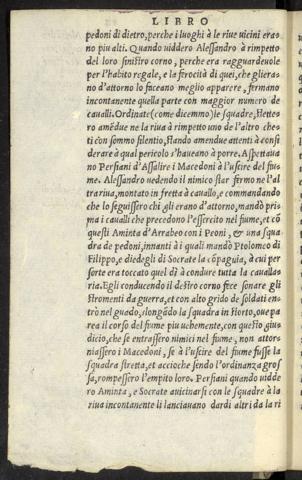 LIBRO
pedoni di dietro, perche i luoghi à le riue uicini erā
no piu alti. Quando uiddero Alessandro à rimpetto
del loro sinistro corno, perche era ragguardeuole
per l'habito regale, e la ferocità di quei, che gliera-
no d'attorno lo faceano meglio apparere, fermano
incontanente quella parte con maggior numero de
caualli. Ordinate (come dicemmo) le squadre, stette-
ro amēdue ne la riua à rimpetto uno del l'altro che-
ti con sommo silentio, stando amendue attenti à consi
derare à qual pericolo s'haueano à porre. Aspettaua
no Persiani d'Assalire i Macedoni à l'uscire del fiu-
me. Alessandro uedendo il nimico star fermo ne l'al
tra riua, montato in fretta à cauallo, e commandando
che lo seguissero chi gli erano d'attorno, mandò pris
ma i caualli che precedono l'essercito nel fiume, et cō
questi Aminta d'Arrabeo con i Peoni, & una squa
dra de pedoni, innanti à i quali mandò Ptolomeo di
Filippo, e diedegli di Socrate la cōpaguia, à cui per
sorte era toccato quel dì à condure tutta la cauallas
ria. Egli conducendo il destro corno fece sonare gli
stromenti da guerra, et con alto grido de soldati en-
trò nel guado, slongādo la squadra in storto, oue pa
rea il corso del fiume piu uehemente, con questo giu-
dicio, che se entrassero nimici nel fiume, non attor-
niassero i Macedoni, se à l'uscire del fiume fusse la
squadra stretta, et accioche sendo l'ordinanza gros
sa, rompessero l'empito loro. Persiani quando uidde
ro Aminta, e Socrate auicinarsi con le squadre à la
riua incontanente li lanciauano dardi altri da la ri